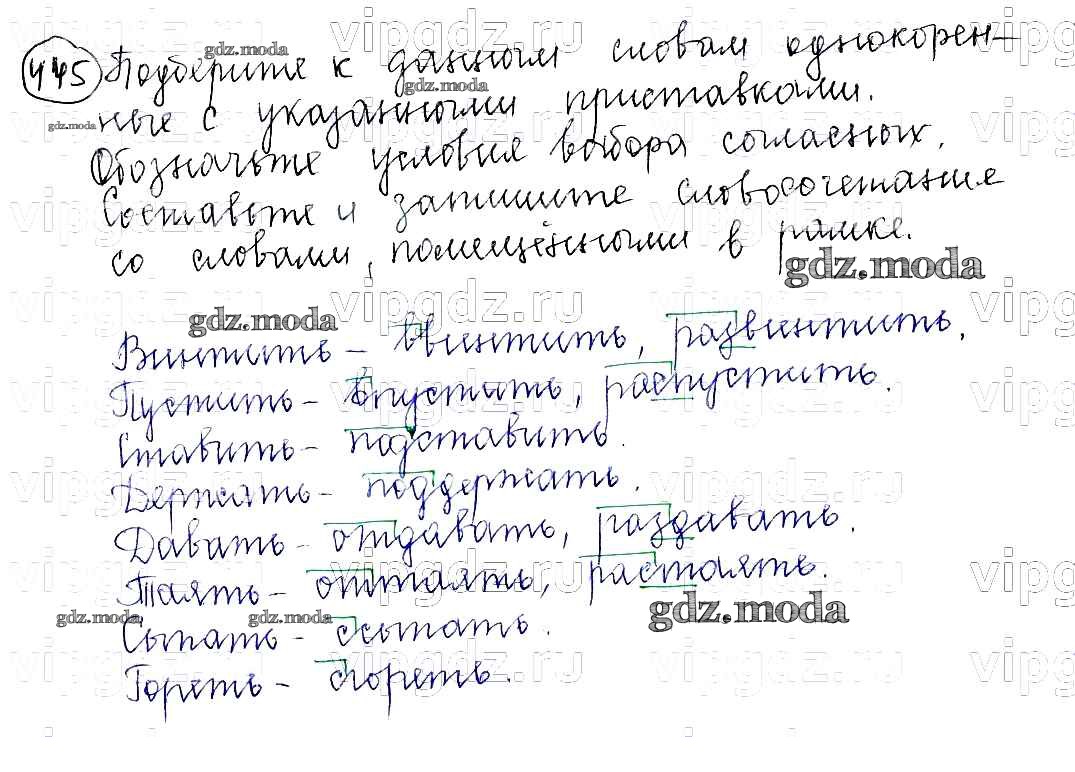 445 Подберите к данным словам однокорен-
ные с указанными приставками.
Обозначьте условия выбора согласных.
Составьте и запишите словосочетание
со словами, помещёнными в рамке.
Винтить - ввинтить, развинтить.
Пустить - впустить, распустить.
Ставить - подставить.
Держать - поддержать.
Давать - отдавать, раздавать.
Таять - оттаять, растаять.
Сыпать - ссыпать.
Гореть - сгореть.
gdz.moda
gdz.moda
gdz.moda
gdz.moda
gdz.moda
gdz.moda
gdz.moda
gdz.moda
vipgdz.ru